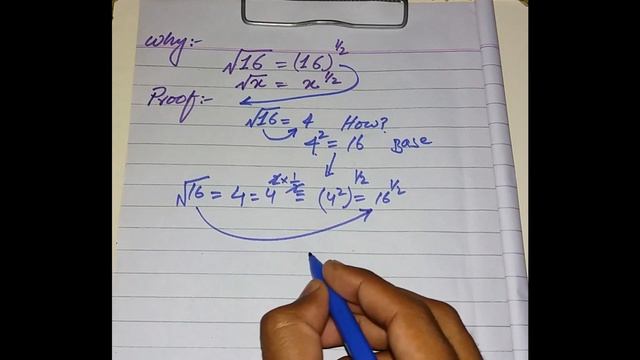 Why:-
√16 = (16)^1/2
√x = x^1/2
Proof:-
√16 = 4 How?
4² = 16 Base
√16 = 4 = 4^2×1/2 = (4²)^1/2 = 16^1/2